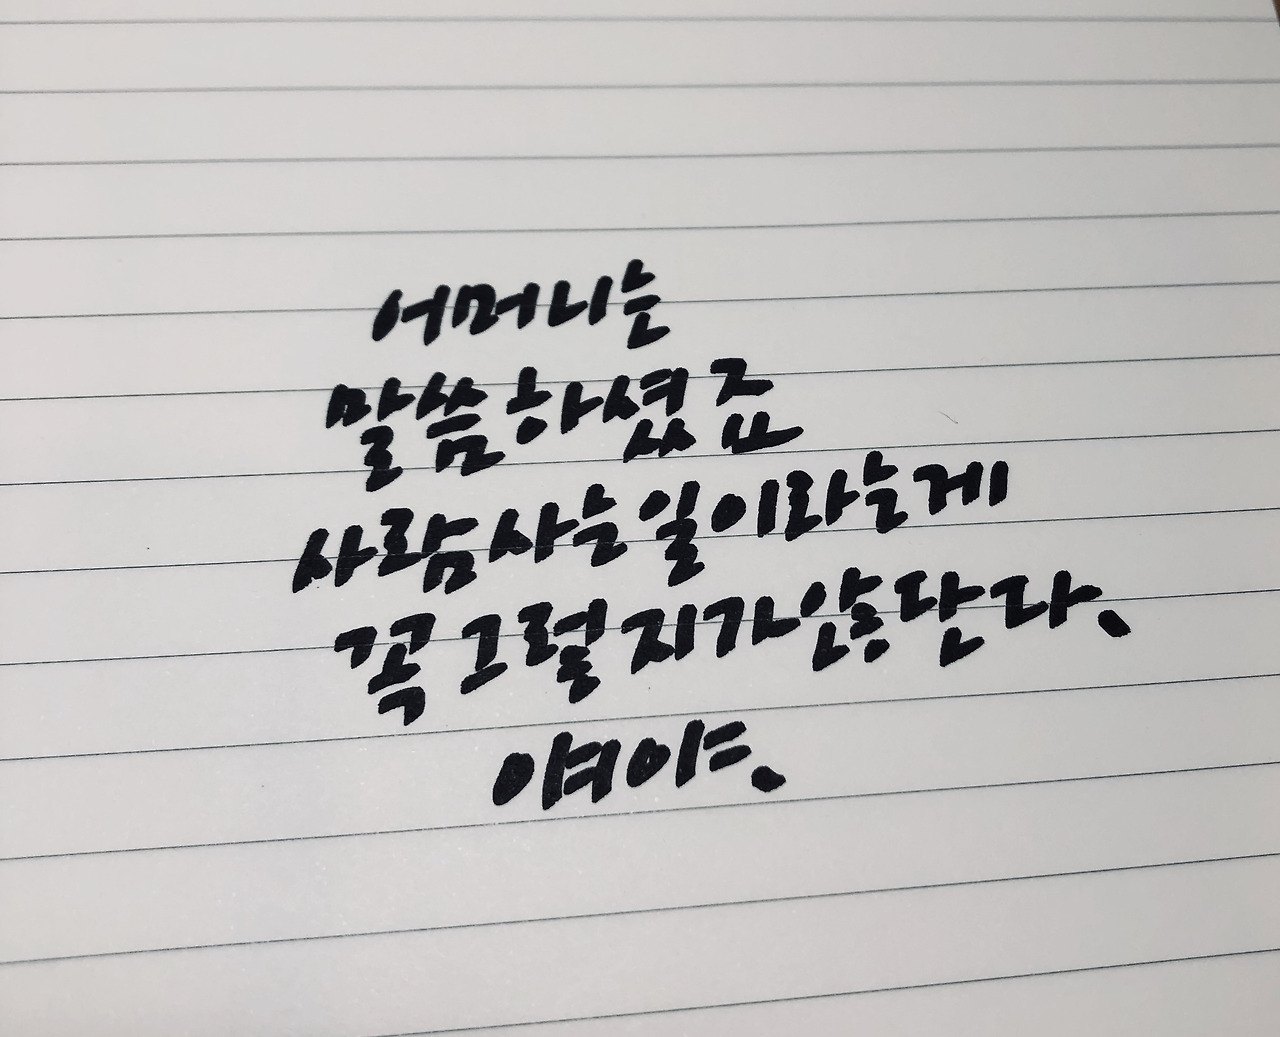 어머니는
말씀하셨죠
사람 사는 일이라는게
꼭 그럴지가 않단다.
얘야.